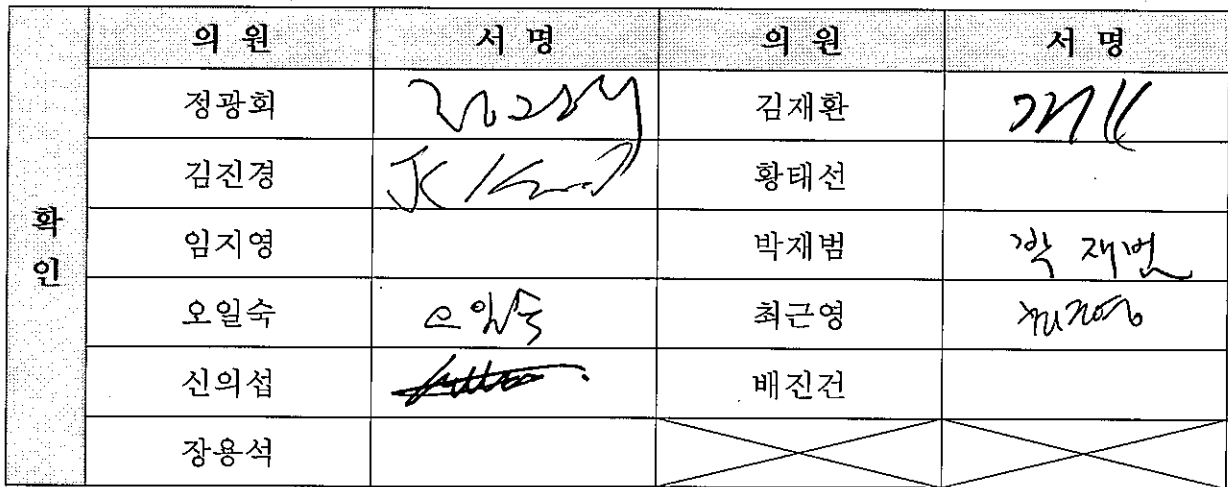 의 원 서 명 의 원 서 명
확인
정광회 김재환
김진경 JK Kim 황태선
임지영 박재범 박재범
오일숙 오일숙 최근영 최근영
신의섭 배진건
장용석